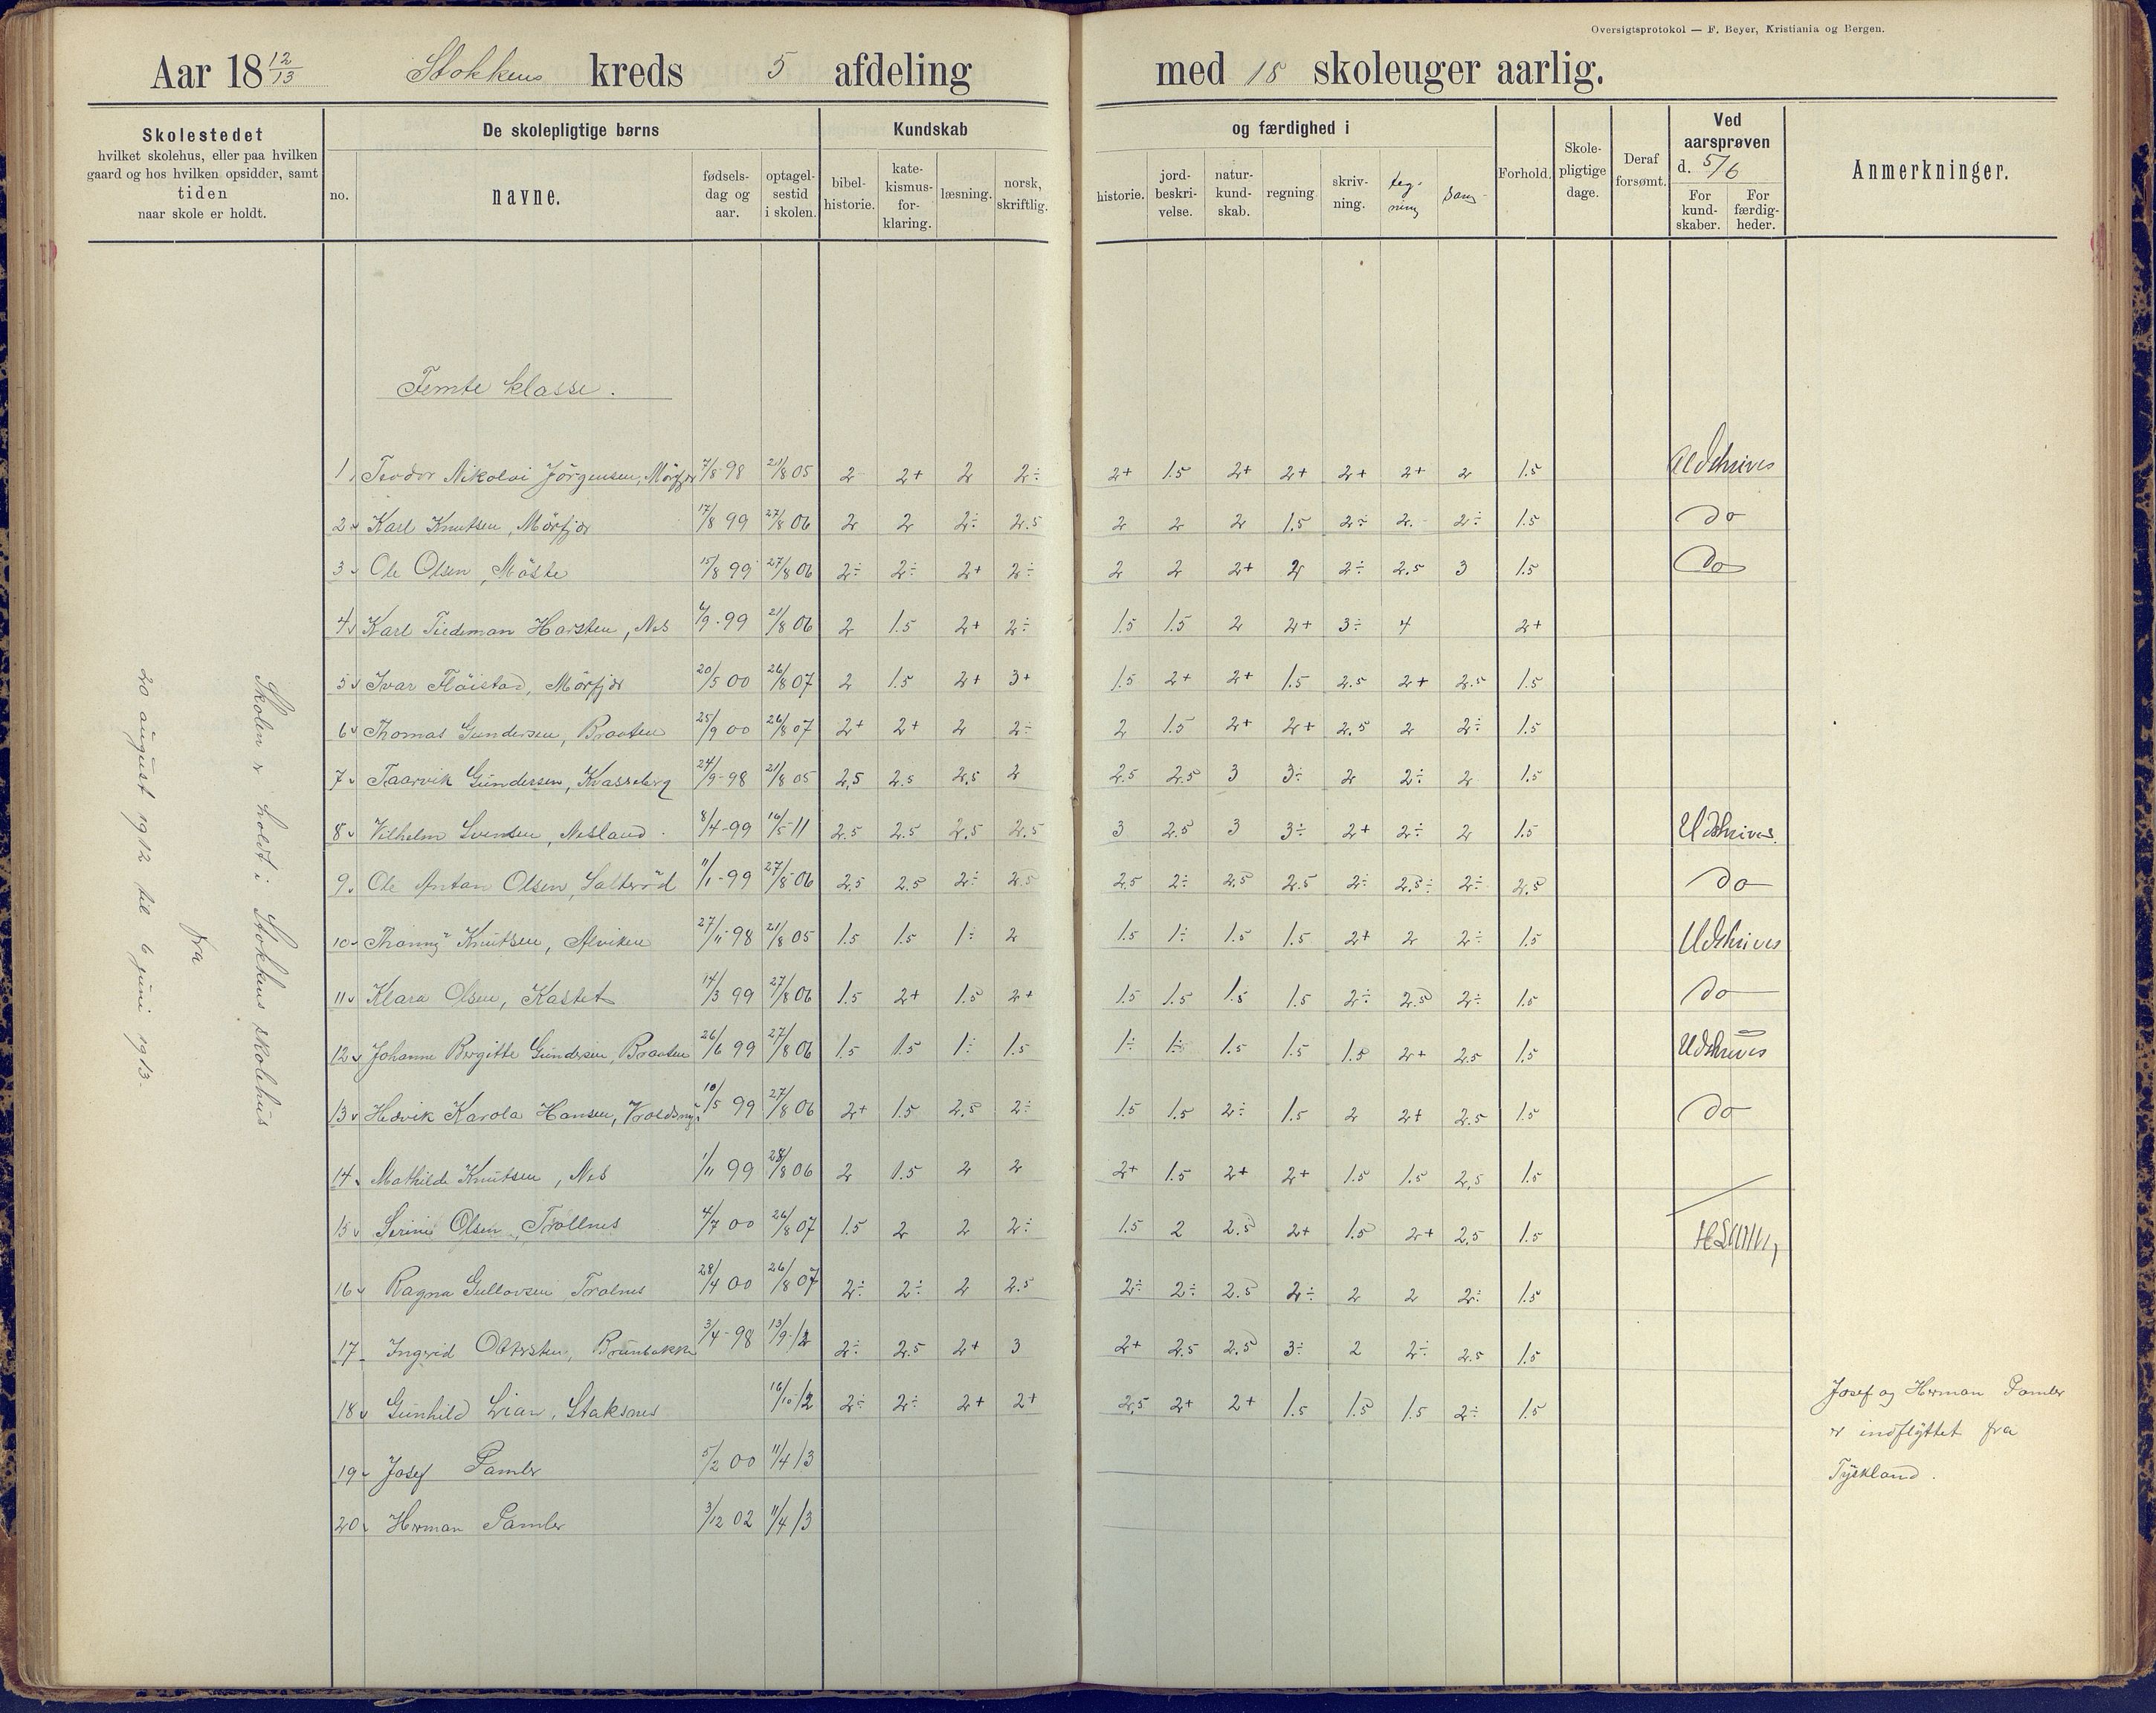 Oversigtsprotokol — F. Beyer, Kristiania og Bergen.
Aar 18 12/13 Stokkens kreds 5 afdeling med 18 skoleuger aarlig.
Skolestedet
hvilket skolehus, eller paa hvilken
gaard og hos hvilken opsidder, samt
tiden
naar skole er holdt.
De skolepligtige børns
no.
navne.
fødsels-
dag og
aar.
optagel-
sestid
i skolen.
Kundskab
bibel-
historie.
kate-
kismus-
for-
klaring.
læsning.
norsk,
skriftlig.
og færdighed i
historie.
jord-
beskri-
velse.
natur-
kund-
skab.
regning.
skriv-
ning.
teg-
ning
Sang
Forhold.
Skole-
pligtige
dage.
Deraf
forsømt.
Ved
aarsprøven
d. 5/6
For
kund-
skaber.
For
færdig-
heder.
Anmerkninger.
Skolen er holdt i Stokkens skolehus
fra
20 august 1912 til 6 juni 1913.
Femte klasse.
1, Teodor Nikolai Jörgensen, Mörfjær 7/8 98 21/8 05 2 2+ 2 2÷ 2+ 1.5 2+ 2+ 2+ 2+ 2 1.5 Udskrives
2 Karl Knutsen, Mörfjær 17/8 99 27/8 06 2 2 2÷ 2.5 2 2 2 1.5 2÷ 2. 2÷ 1.5 do
3 Ole Olsen, Möste 15/8 99 27/8 06 2÷ 2÷ 2+ 2÷ 2 2 2+ 2 2÷ 2.5 3 1.5 do
4 Karl Tiedeman Harsten, Nes 6/9 99 21/8 06 2 1.5 2+ 2÷ 1.5 1.5 2 2+ 3÷ 4 2+
5 Ivar Flöistad, Mörfjær 20/5 00 26/8 07 2 1.5 2+ 3+ 1.5 2+ 2+ 1.5 2.5 2+ 2.5 1.5
6 Thomas Gundersen, Braaten 25/9 00 26/8 07 2+ 2+ 2 2÷ 2 1.5 2+ 2+ 2.5 2 2÷ 1.5
7 Taarvik Gundersen, Kvasseberg 24/9-98 21/8 05 2,5 2.5 2,5 2 2.5 2.5 3 3÷ 2 2÷ 2 1.5
8 Vilhelm Svensen, Nesland. 8/4-99 16/5-11 2.5 2.5 2.5 2.5 3 2.5 3 3÷ 2+ 2÷ 2 1.5 Udskrives.
9. Ole Antan Olsen, Salterød 11/1-99 27/8-06 2.5 2.5 2÷ 2.5 2.5 2÷ 2.5 2.5 2÷ 2.5÷ 2÷ 2.5 do
10 Thanny Knutsen, Alviken 27/11-98 21/8 05 1.5 1.5 1÷ 2 1.5 1÷ 1.5 1.5 2+ 2 2÷ 1.5 Udskrives
11 Klara Olsen, Kastet 14/3 99 27/8 06 1.5 2+ 1.5 2+ 1.5 1.5 1.5 1.5 2÷ 2.5 2÷ 1.5 do
12 Johanne Bergitte Gundersen, Braaten 26/6 99 27/8 06 1.5 1.5 1÷ 1.5 1÷ 1÷ 1.5 1.5 1.5 2+ 2.5 1.5 Udskrives
13 Hedvik Karola Hansen, 10/5 99 27/8 06 2+ 1.5 2.5 2÷ 1.5 1.5 2÷ 1.5 2 2+ 2.5 1.5 do
14 Mathilde Knutsen, Nes 1/11 99 28/8 06 2 1.5 2 2 2+ 1.5 2+ 2+ 1.5 1.5 2,5 1.5
15 Serine Olsen, Trollnes 4/7 00 26/8 07 1.5 2 2 2÷ 1.5 2 2.5 2+ 1.5 2+ 2.5 1.5
16 Ragna Gullovsen Trolnes 28/4 00 26/8 07 2÷ 2÷ 2 2.5 2÷ 2÷ 2.5 2÷ 2 2 2÷ 1.5
17 Ingrid Ottersten, Brunbakken 3/4-98 13/9-12 2÷ 2.5 2+ 3 2+ 2.5 2.5 3÷ 2 2÷ 2.5 1.5
18 Gunhild Lian, Staksnes 16/10-12 2÷ 2÷ 2+ 2+ 2,5 2+ 2+ 1.5 1.5 1.5 2÷ 1.5
19 Josef Pamler 5/2 00 11/4 13
20 Herman Pamler 3/12 02 11/4 13
Josef og Herman Pamler
er indflyttet fra
Tyskland.